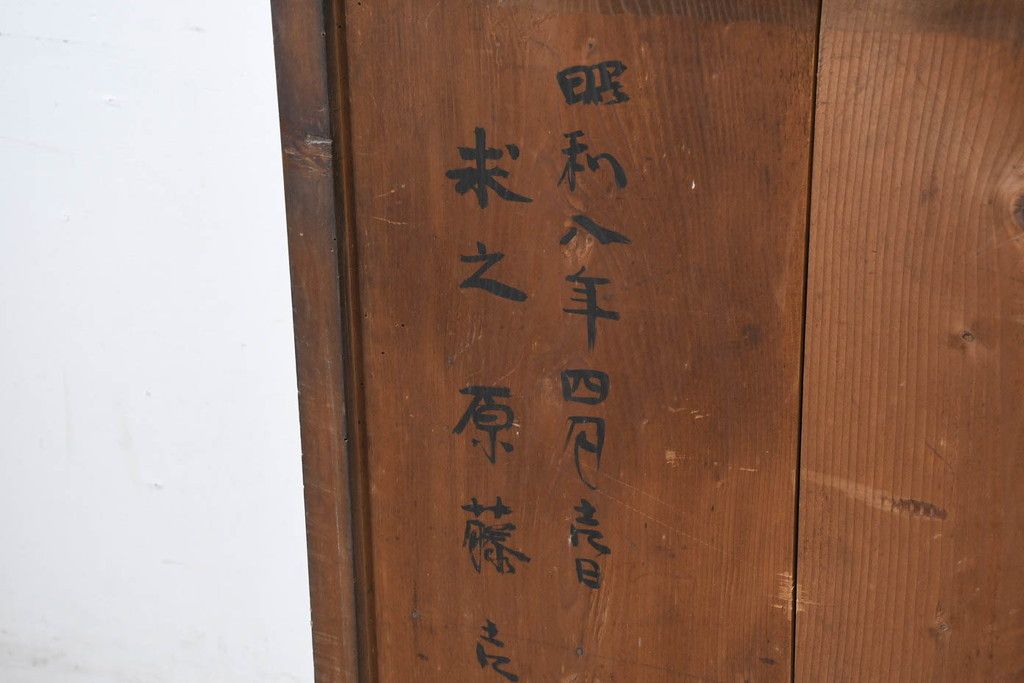 昭和八年四月壱日
求之原藤